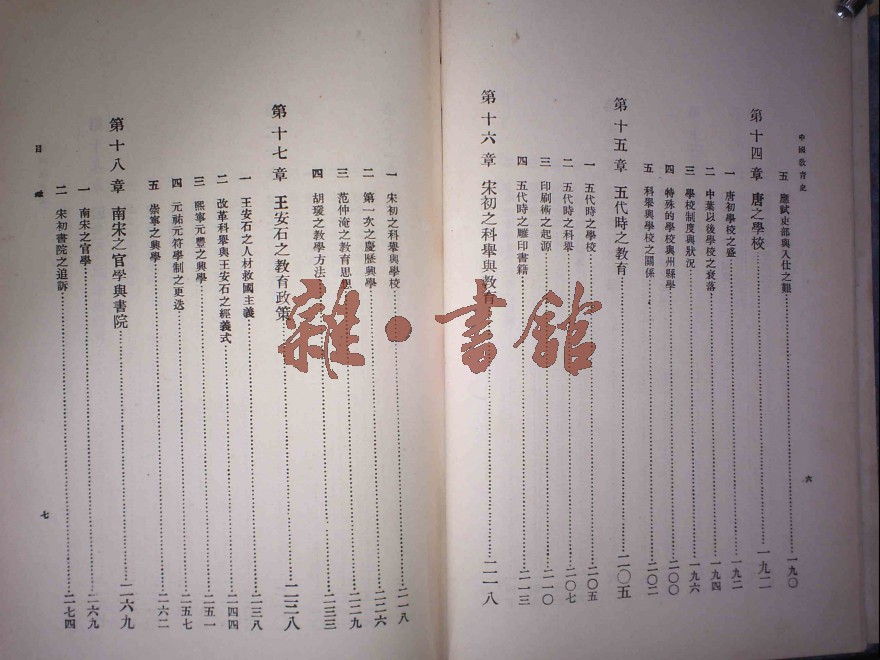 中國教育史
五 應試吏部與入仕之艱……一九〇
第十四章 唐之學校……一九二
一 唐初學校之盛……一九二
二 中葉以後學校之衰落……一九四
三 學校制度與狀況……一九六
四 特殊的學校與州縣學……二〇〇
五 科舉與學校之關係……二〇二
第十五章 五代時之教育……二〇五
一 五代時之學校……二〇五
二 五代時之科舉……二〇七
三 印刷術之起源……二一〇
四 五代時之雕印書籍……二一三
第十六章 宋初之科舉與教育……二一八
六
一 宋初之科舉與學校……二一八
二 第一次之慶歷興學……二二六
三 范仲淹之教育思想……二二九
四 胡瑗之教學方法……二三三
第十七章 王安石之教育政策……二三八
一 王安石之人材救國主義……二三八
二 改革科舉與王安石之經義式……二四四
三 熙寧元豐之興學……二五一
四 元祐元符學制之更迭……二五七
五 崇寧之興學……二六二
第十八章 南宋之官學與書院……二六九
一 南宋之官學……二六九
二 宋初書院之追訴……二七四
目錄
七
雜·書館